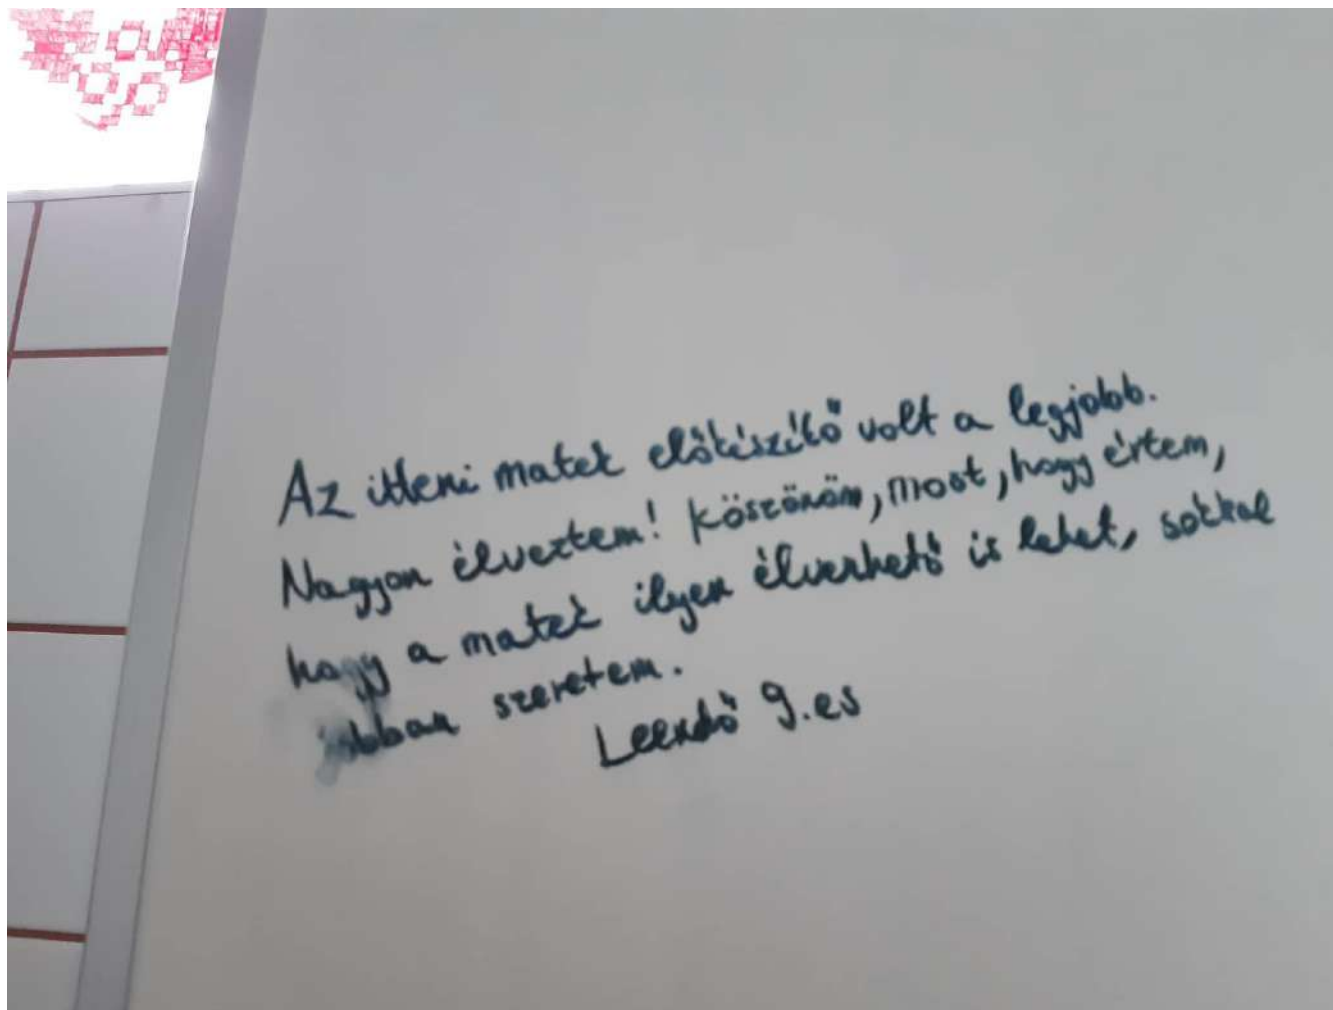 Az itteni matek előkészítő volt a legjobb.
Nagyon élveztem! Köszönöm, most, hogy értem,
hogy a matek ilyen élvezhető is lehet, sokkal
jobban szeretem.
Leendő 9.es